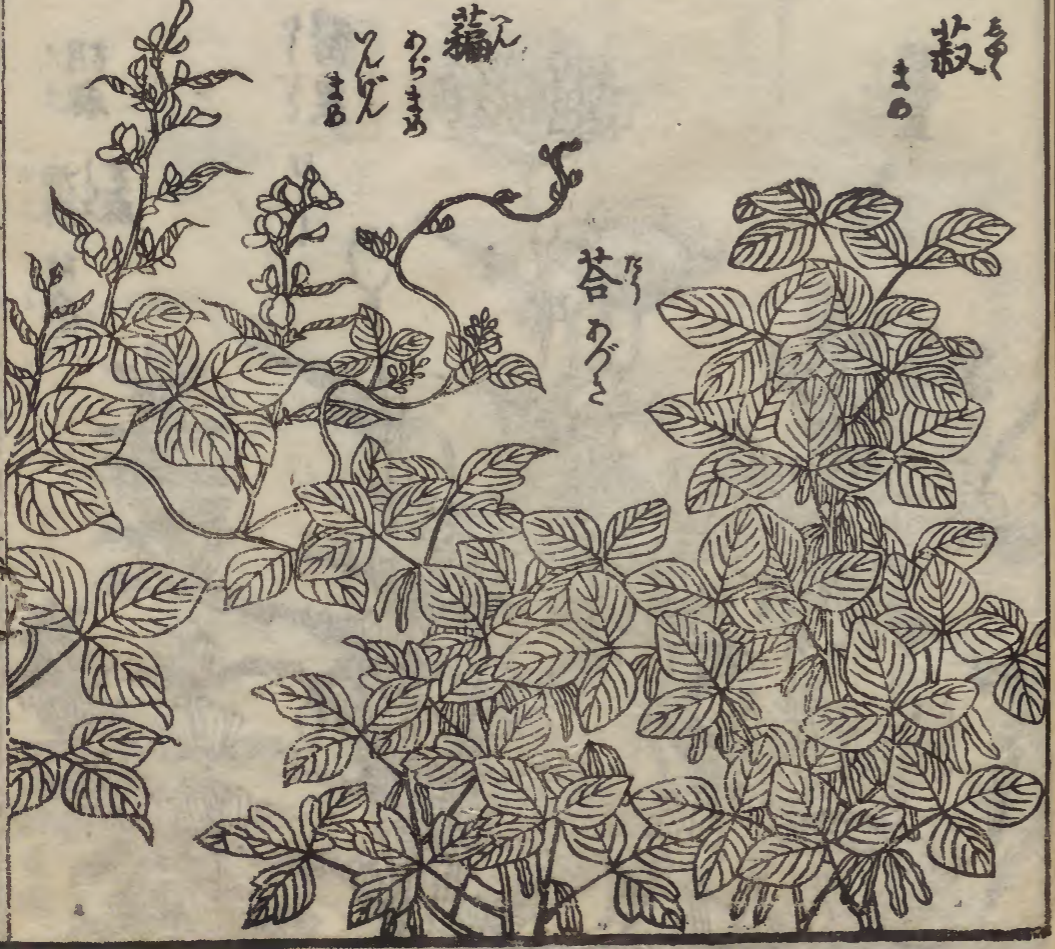 菽 しゆく
まめ
荅 たう あづき
藊 へん
あぢまめ
いんげん
まめ